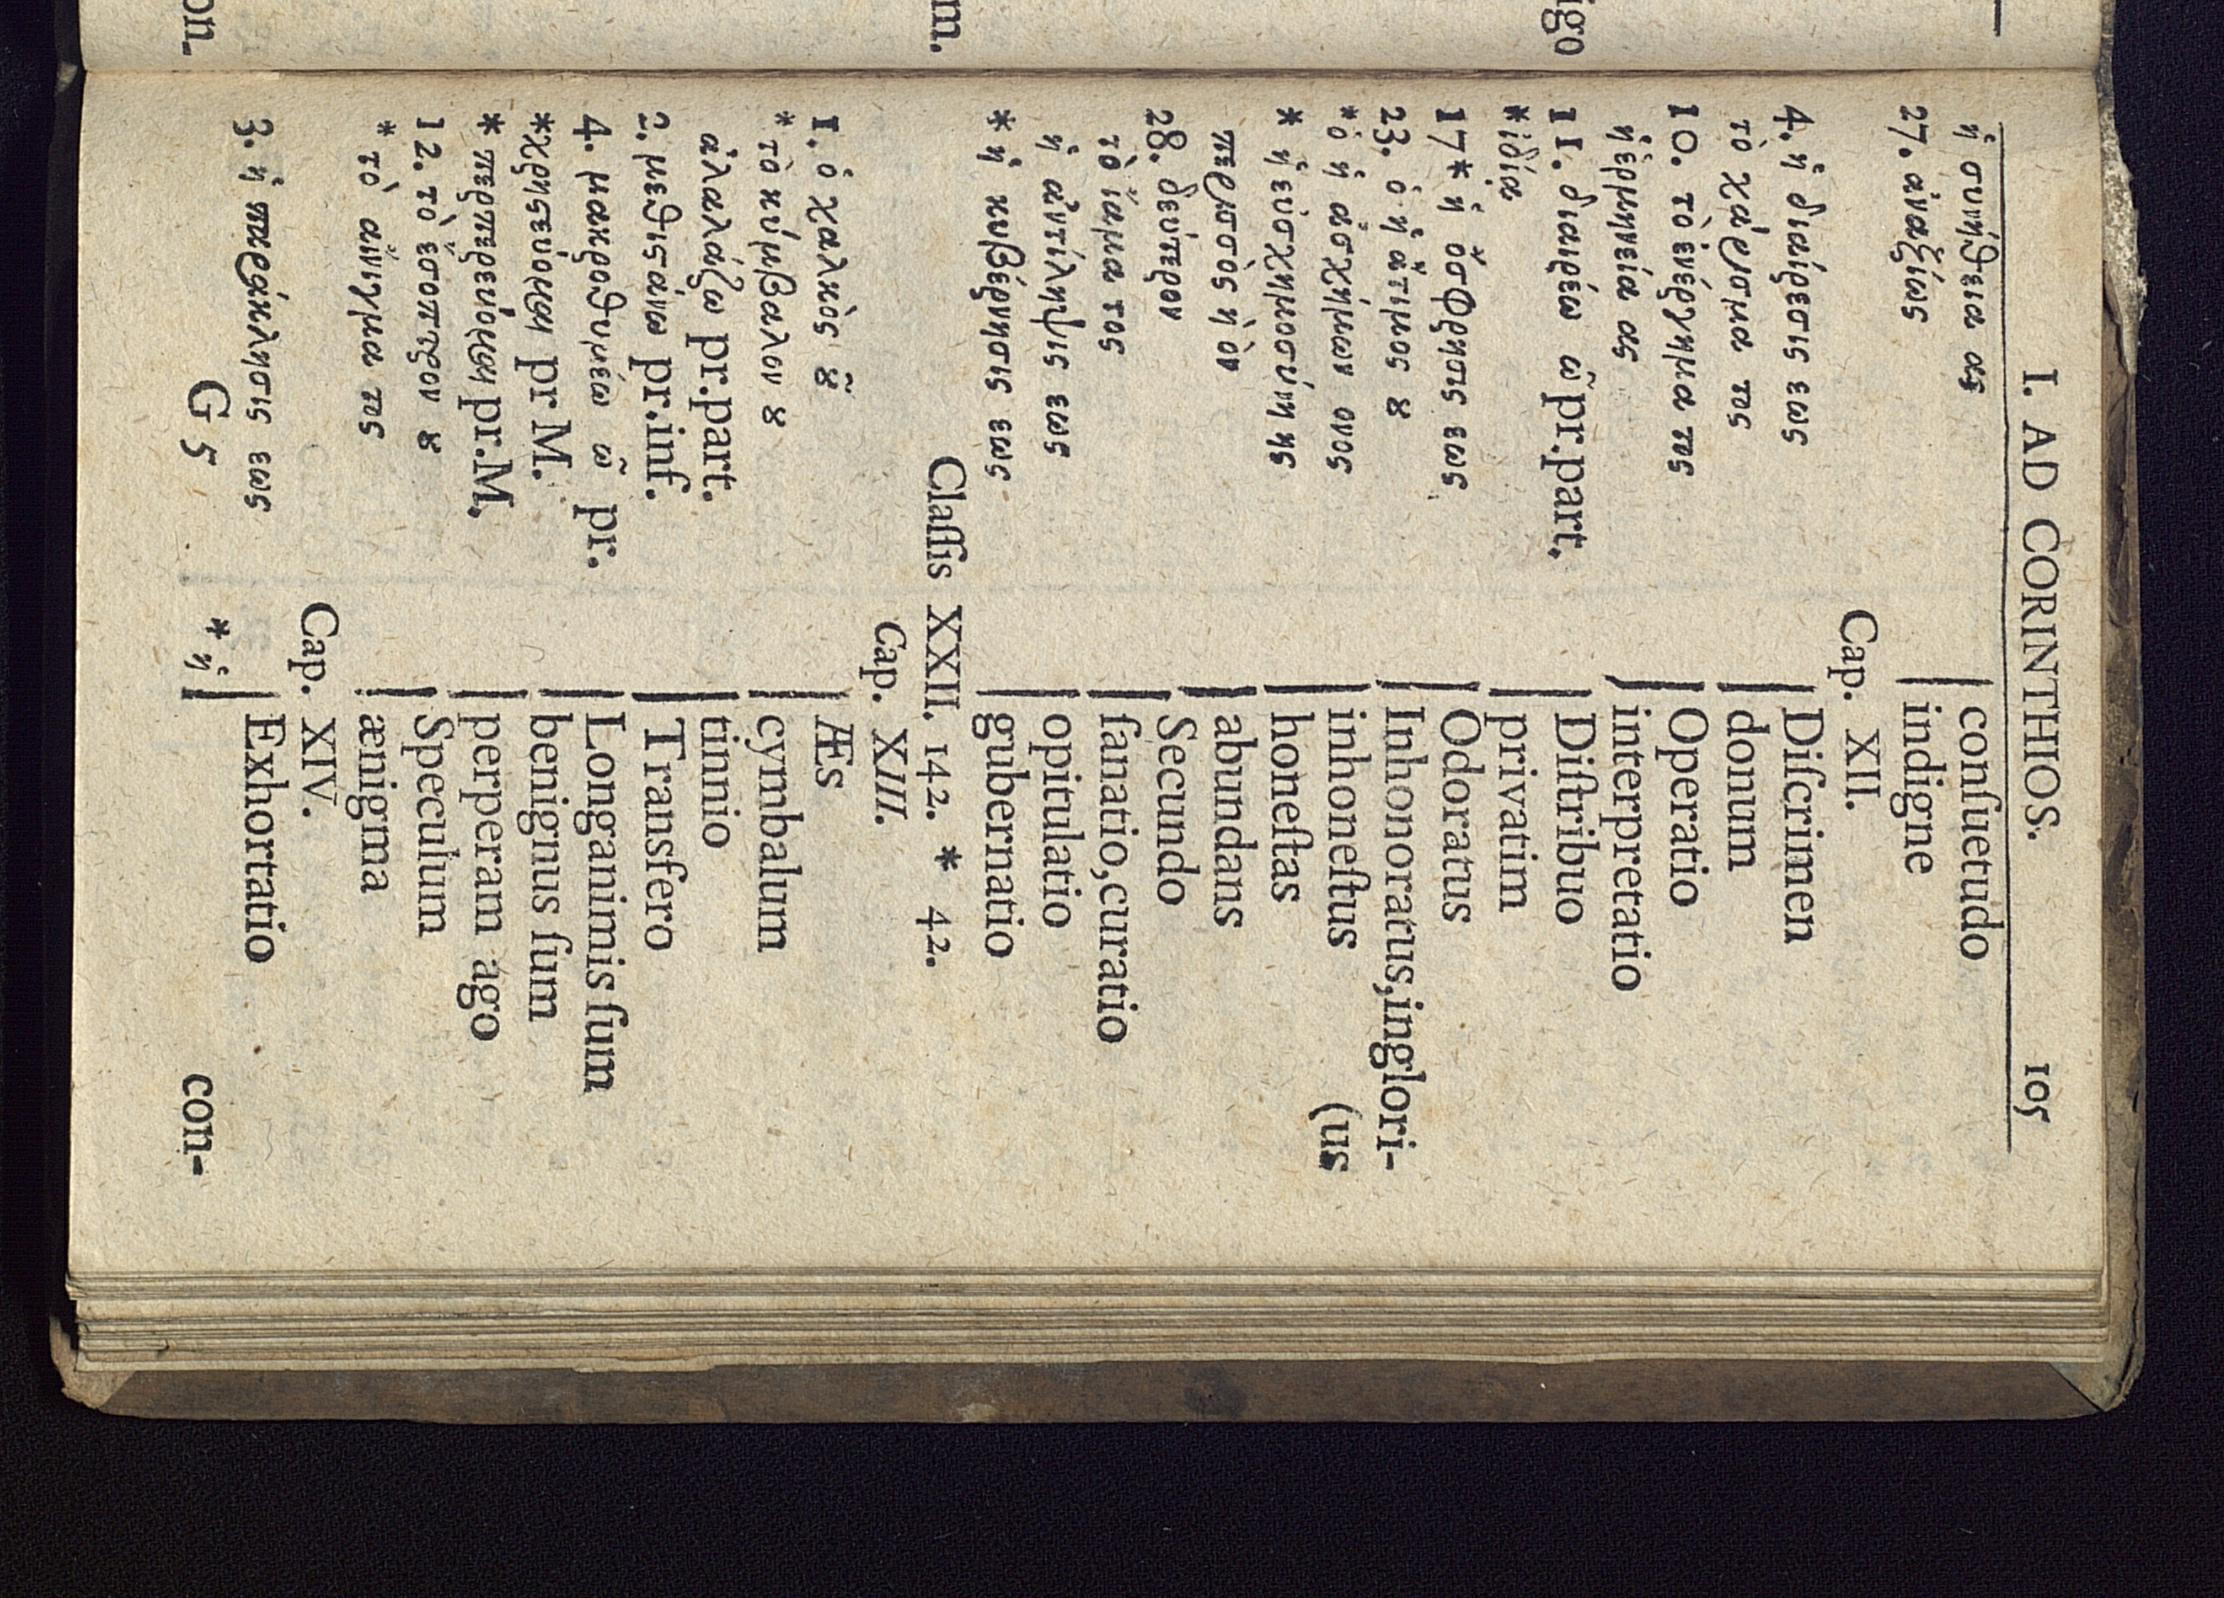 I. AD CORINTHIOS. 105
ἡ συνήθεια ας | conſuetudo
27. ἀναξίως | indigne
Cap. XII.
4. ἡ διαίρεσις εως | Diſcrimen
τὸ χάρισμα τος | donum
10. τὸ ἐνέργημα τος | Operatio
ἡ ἑρμηνεία ας | interpretatio
11. διαιρέω ῶ pr.part. | Diſtribuo
*ἰδίᾳ | privatim
17* ἡ ὄσφρησις εως | Odoratus
23. ὁ ἡ ἄτιμος ȣ | Inhonoratus,inglori-
*ὁ ἡ ἀσχήμων ονος | inhoneſtus (us
* ἡ εὐσχημοσύνη ης | honeſtas
περισσὸς ὴ ὸν | abundans
28. δεύτερον | Secundo
τὸ ἴαμα τος | ſanatio,curatio
ἡ ἀντίληψις εως | opitulatio
* ἡ κυβέρνησις εως | gubernatio
Claſſis XXII. 142. * 42.
Cap. XIII.
1. ὁ χαλκὸς ȣ͂ | Æs
* τὸ κύμβαλον ȣ | cymbalum
ἀλαλάζω pr.part. | tinnio
2. μεθιϛάνω pr.inf. | Transfero
4. μακροθυμέω ῶ pr. | Longanimis ſum
*χρηϛεύομαι pr M. | benignus ſum
* περπερεύομαι pr.M, | perperam ago
12. τὸ ἔσοπτρον ȣ | Speculum
* τὸ αἴνιγμα τος | ænigma
Cap. XIV.
3. ἡ παράκλησις εως | Exhortatio
G 5 * ἡ | con-
on.
m.
igo